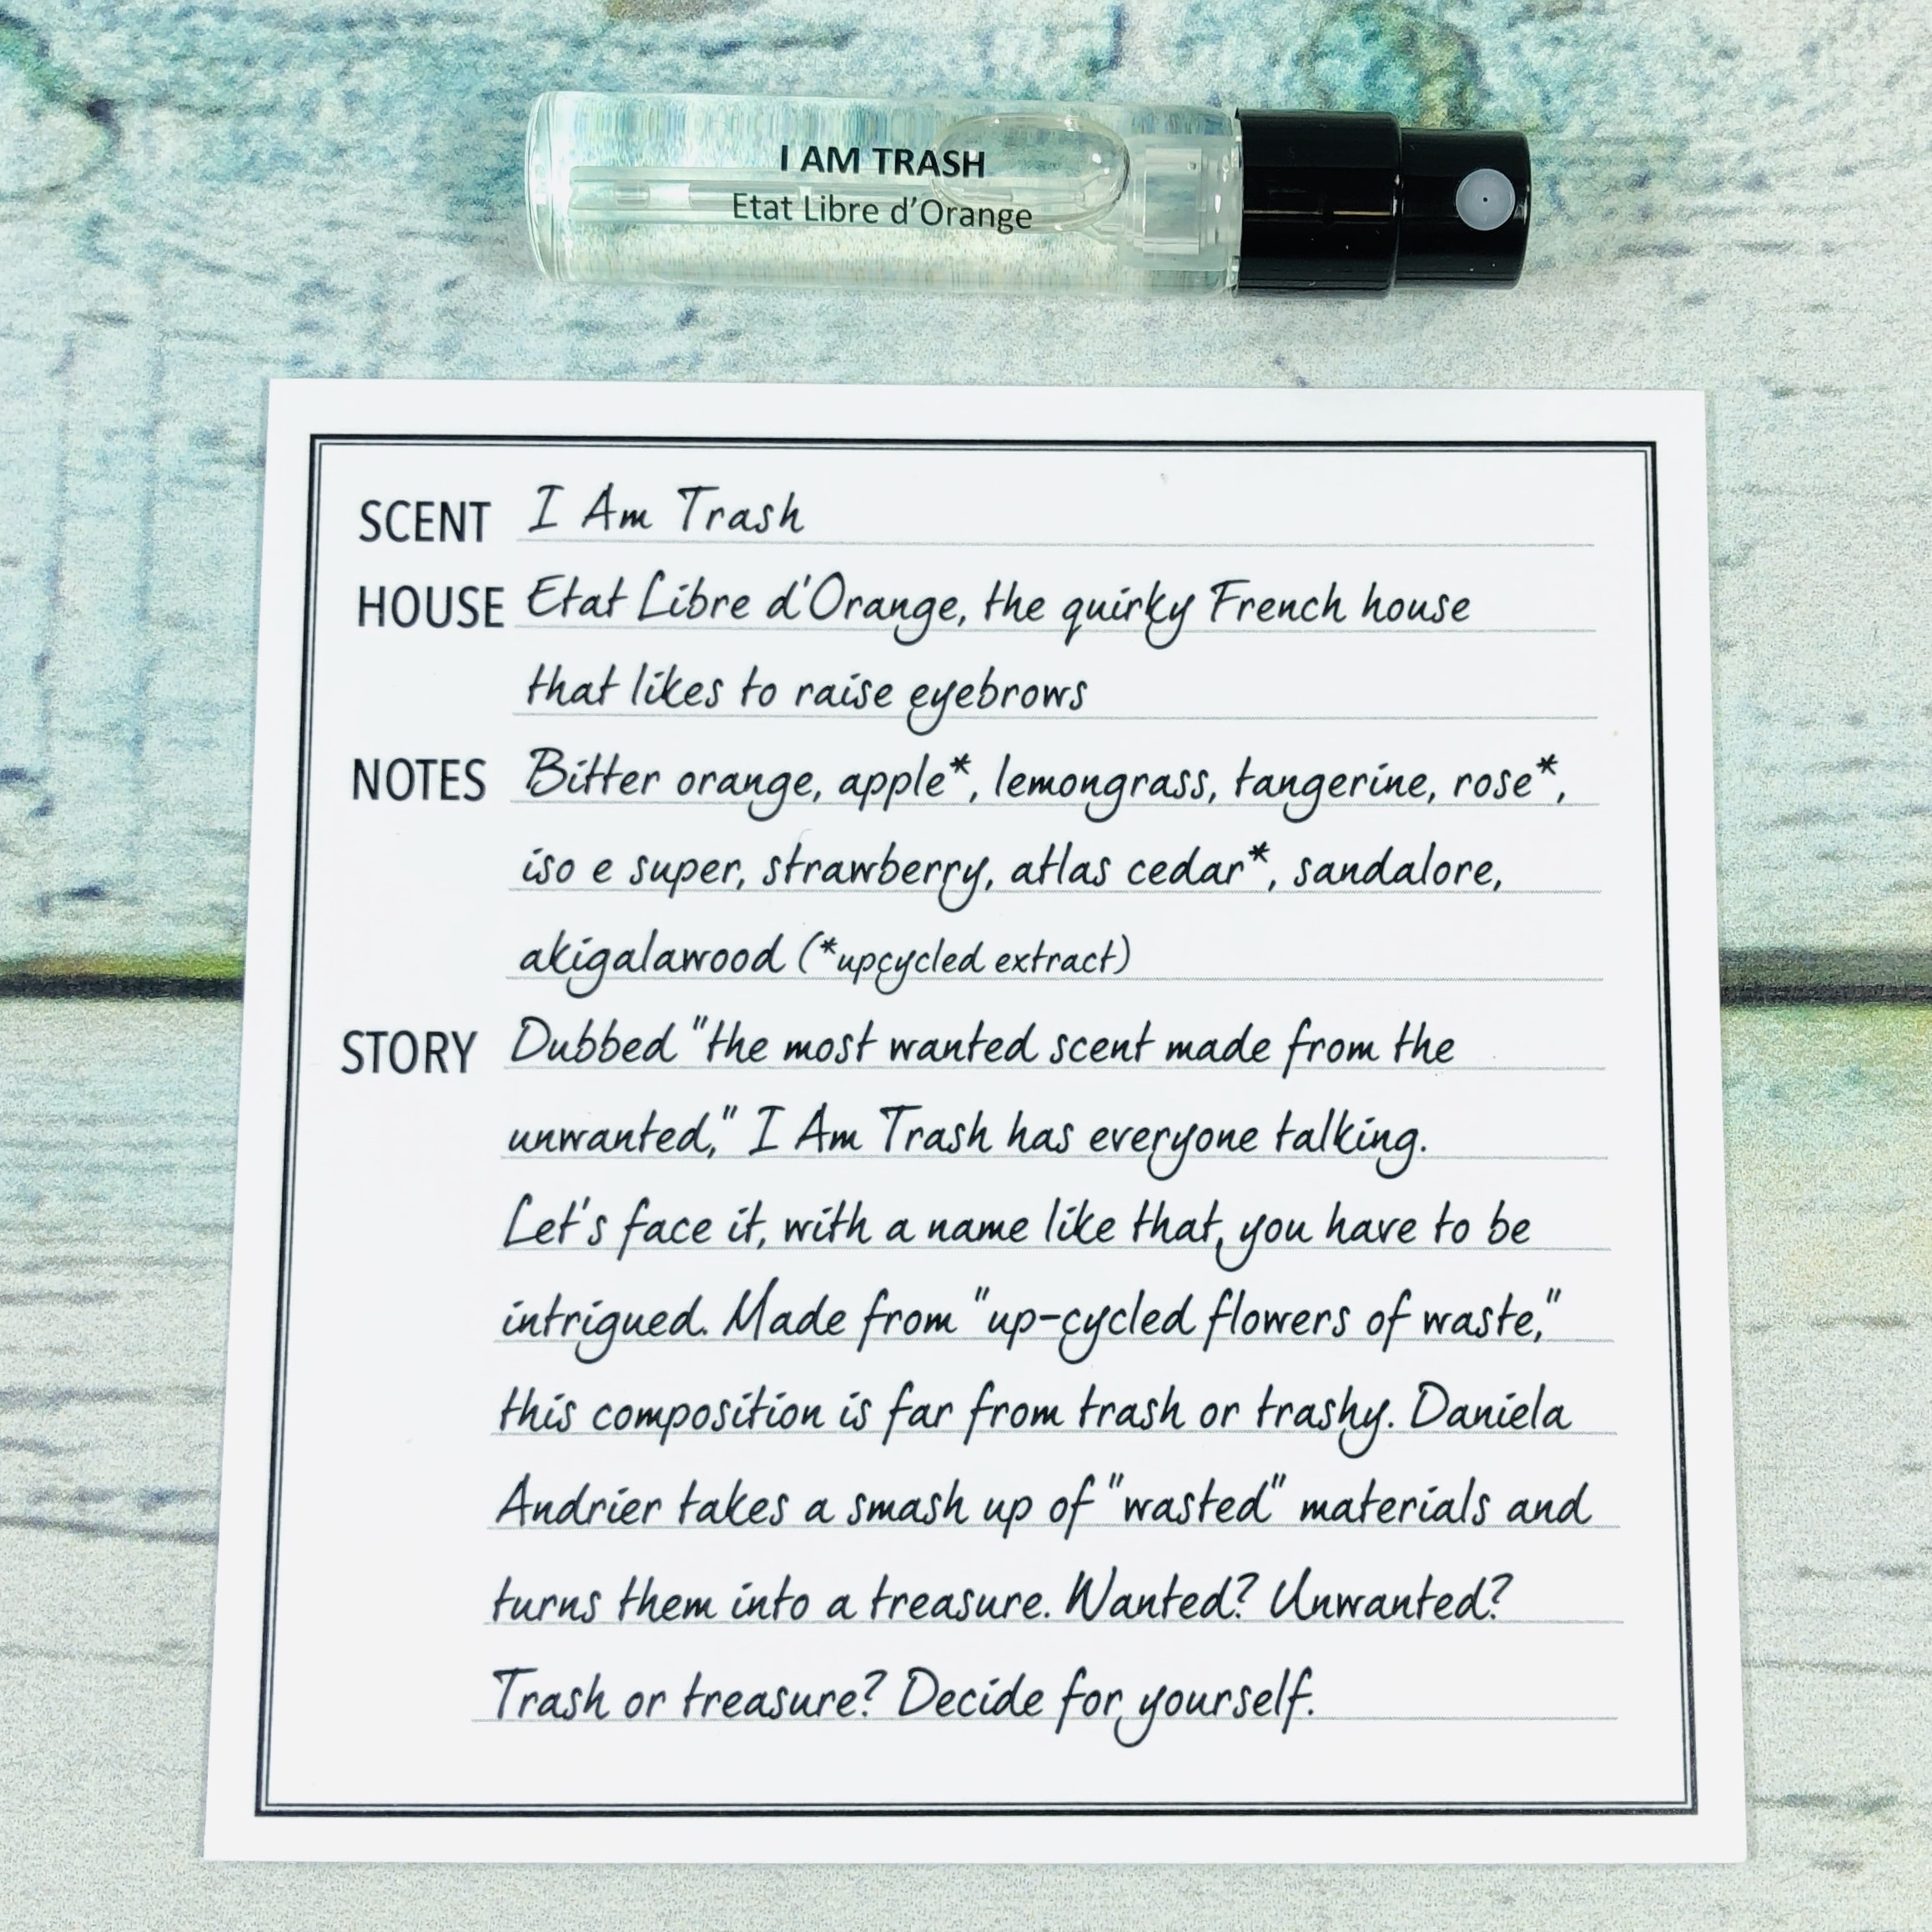 I AM TRASH
Etat Libre d'Orange
SCENT I Am Trash
HOUSE Etat Libre d'Orange, the quirky French house
that likes to raise eyebrows
NOTES Bitter orange, apple*, lemongrass, tangerine, rose*,
iso e super, strawberry, atlas cedar*, sandalore,
akigalawood (*upcycled extract)
STORY Dubbed "the most wanted scent made from the
unwanted," I Am Trash has everyone talking.
Let's face it, with a name like that, you have to be
intrigued. Made from "up-cycled flowers of waste,"
this composition is far from trash or trashy. Daniela
Andrier takes a smash up of "wasted" materials and
turns them into a treasure. Wanted? Unwanted?
Trash or treasure? Decide for yourself.